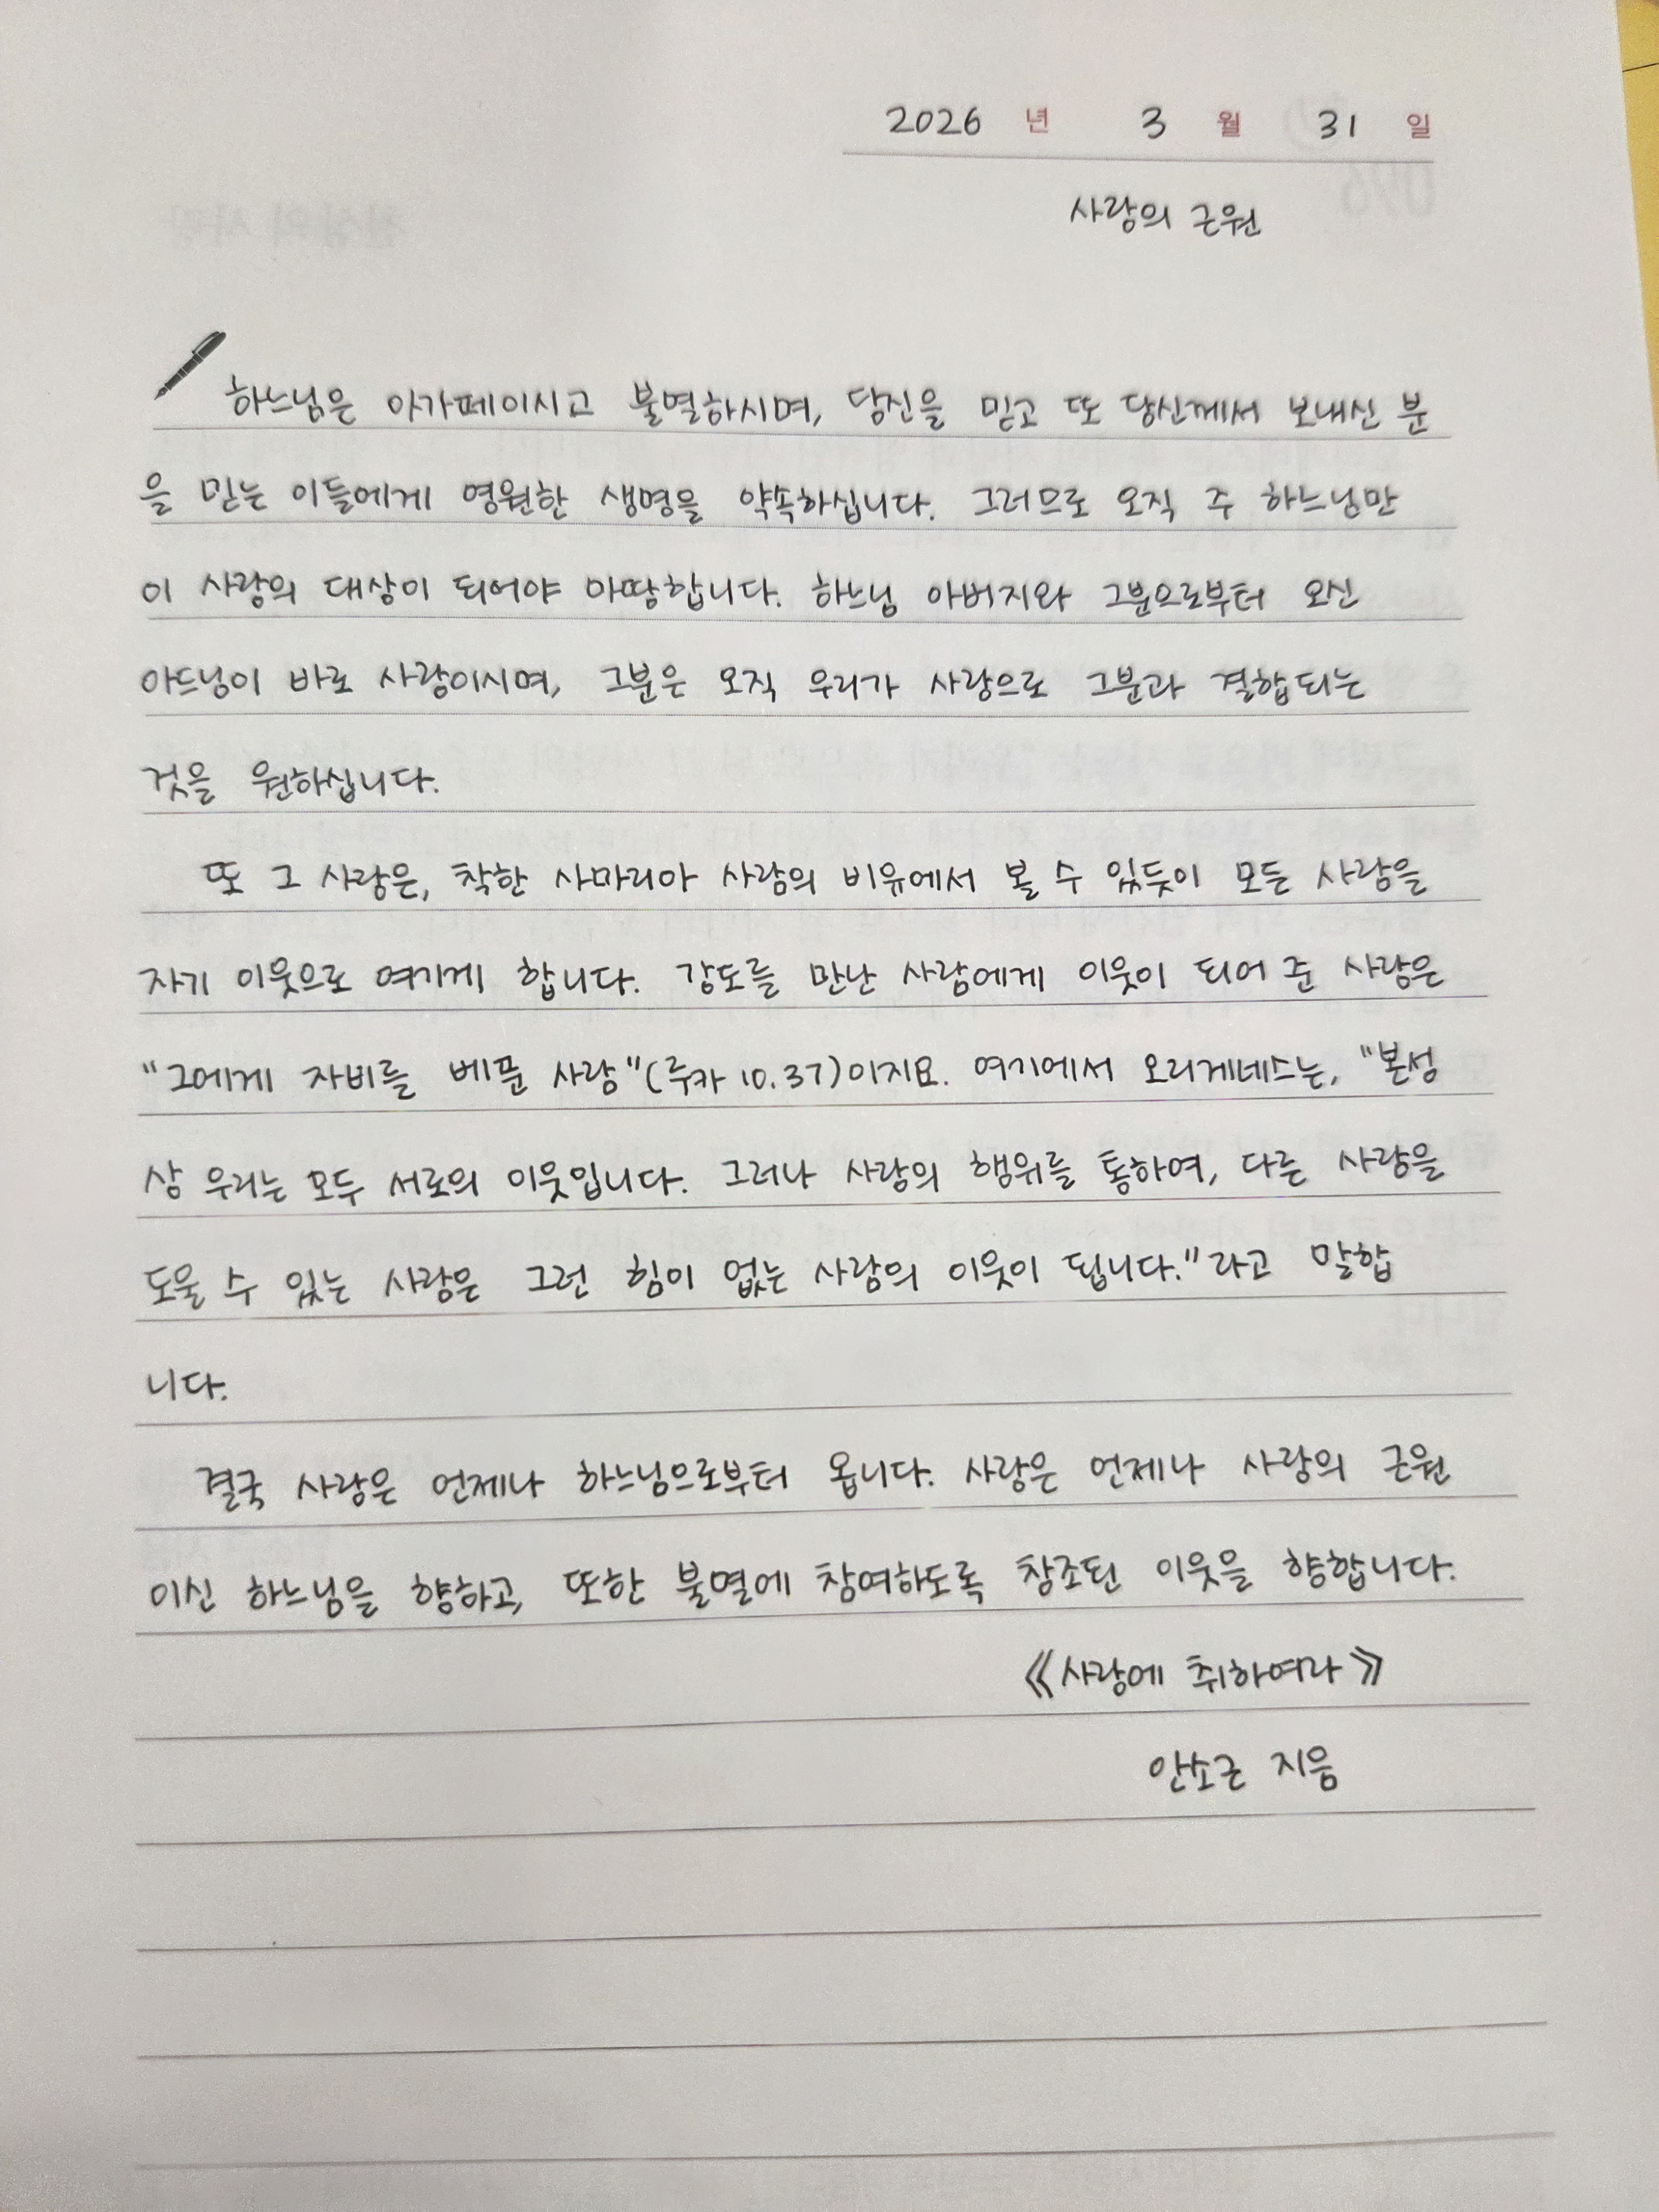 2026 년 3 월 31 일
사랑의 근원
하느님은 아가페이시고 불멸하시며, 당신을 믿고 또 당신께서 보내신 분
을 믿는 이들에게 영원한 생명을 약속하십니다. 그러므로 오직 주 하느님만
이 사랑의 대상이 되어야 마땅합니다. 하느님 아버지와 그분으로부터 오신
아드님이 바로 사랑이시며, 그분은 오직 우리가 사랑으로 그분과 결합되는
것을 원하십니다.
또 그 사랑은, 착한 사마리아 사람의 비유에서 볼 수 있듯이 모든 사람을
자기 이웃으로 여기게 합니다. 강도를 만난 사람에게 이웃이 되어 준 사람은
"그에게 자비를 베푼 사람"(루카 10.37)이지요. 여기에서 오리게네스는, "본성
상 우리는 모두 서로의 이웃입니다. 그러나 사랑의 행위를 통하여, 다른 사람을
도울 수 있는 사람은 그런 힘이 없는 사람의 이웃이 됩니다."라고 말합
니다.
결국 사랑은 언제나 하느님으로부터 옵니다. 사랑은 언제나 사랑의 근원
이신 하느님을 향하고, 또한 불멸에 참여하도록 창조된 이웃을 향합니다.
《사랑에 취하여라》
안소근 지음